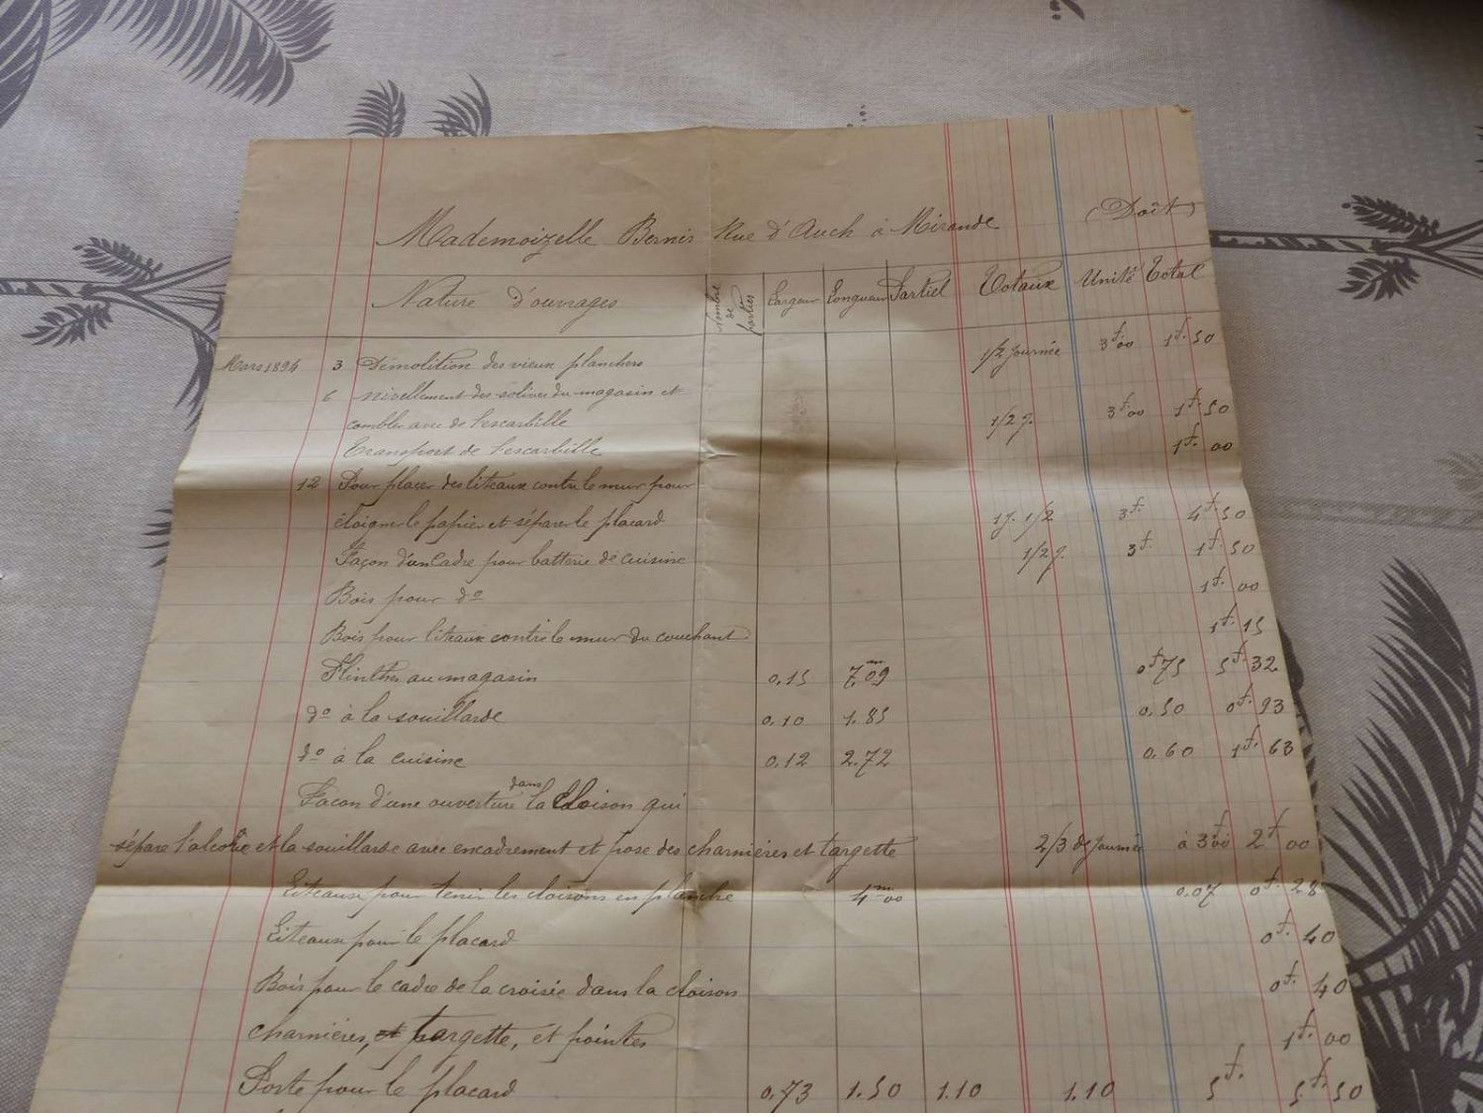 Mademoizelle Bernis Rue d'Auch à Mirande (Doit)
Nature d'ouvrages Nombre de parties Largeur Longueur Partiel Totaux Unité Total
Mars 1894 3 Démolition des vieux planchers 1/2 journée 3f00 1f.50
6 nivellement des solives du magasin et
combler avec de l'escarbille 1/2 j. 3f.00 1f.50
Transport de l'escarbille 1f. 00
12 Pour placer des liteaux contre le mur pour
éloigner le papier et séparer le placard 1j. 1/2 3f. 4f.50
Façon d'un Cadre pour batterie de cuisine 1/2 j. 3f. 1f.50
Bois pour do 1f. 00
Bois pour liteaux contre le mur du couchant 1f.15
Plinthes au magasin 0,15 7m09 0f75 5f.32
do à la souillarde 0,10 1.85 0.50 0f.93
do à la cuisine 0.12 2.72 0.60 1f.63
Façon d'une ouverture dans la Cloison qui
sépare l'alcove et la souillarde avec encadrement et pose des charnières et targette 2/3 de journée à 3f00 2f00
Liteaux pour tenir les cloisons en planche 4m00 0.07 0f.28
Liteaux pour le placard 0f. 40
Bois pour le cadre de la croisée dans la cloison 0f. 40
charnières, et targette, et pointes 1f.00
Porte pour le placard 0.73 1.50 1.10 1.10 5f. 5f.50